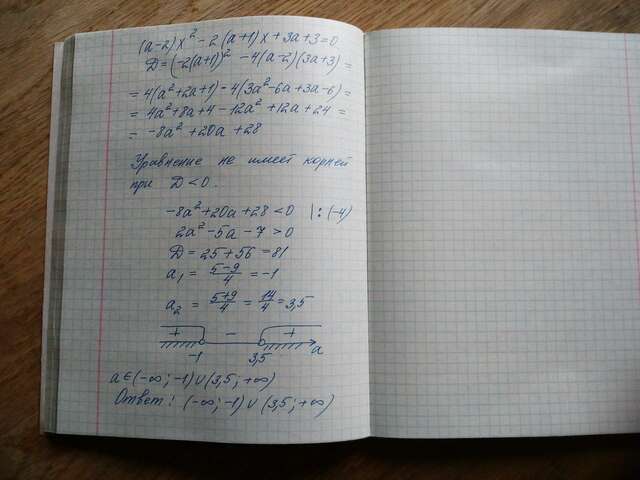 (a-2)x² - 2(a+1)x + 3a+3=0
D=(-2(a+1))² - 4(a-2)(3a+3) =
= 4(a²+2a+1) - 4(3a²-6a+3a-6) =
= 4a²+8a+4 - 12a²+12a+24 =
= -8a²+20a+28
Уравнение не имеет корней
при D<0.
-8a²+20a+28<0 |:(-4)
2a²-5a-7>0
D=25+56=81
a₁ = (5-9)/4 = -1
a₂ = (5+9)/4 = 14/4 = 3,5
+ - +
-1 3,5 a
a∈(-∞;-1)∪(3,5;+∞)
Ответ: (-∞;-1)∪(3,5;+∞)